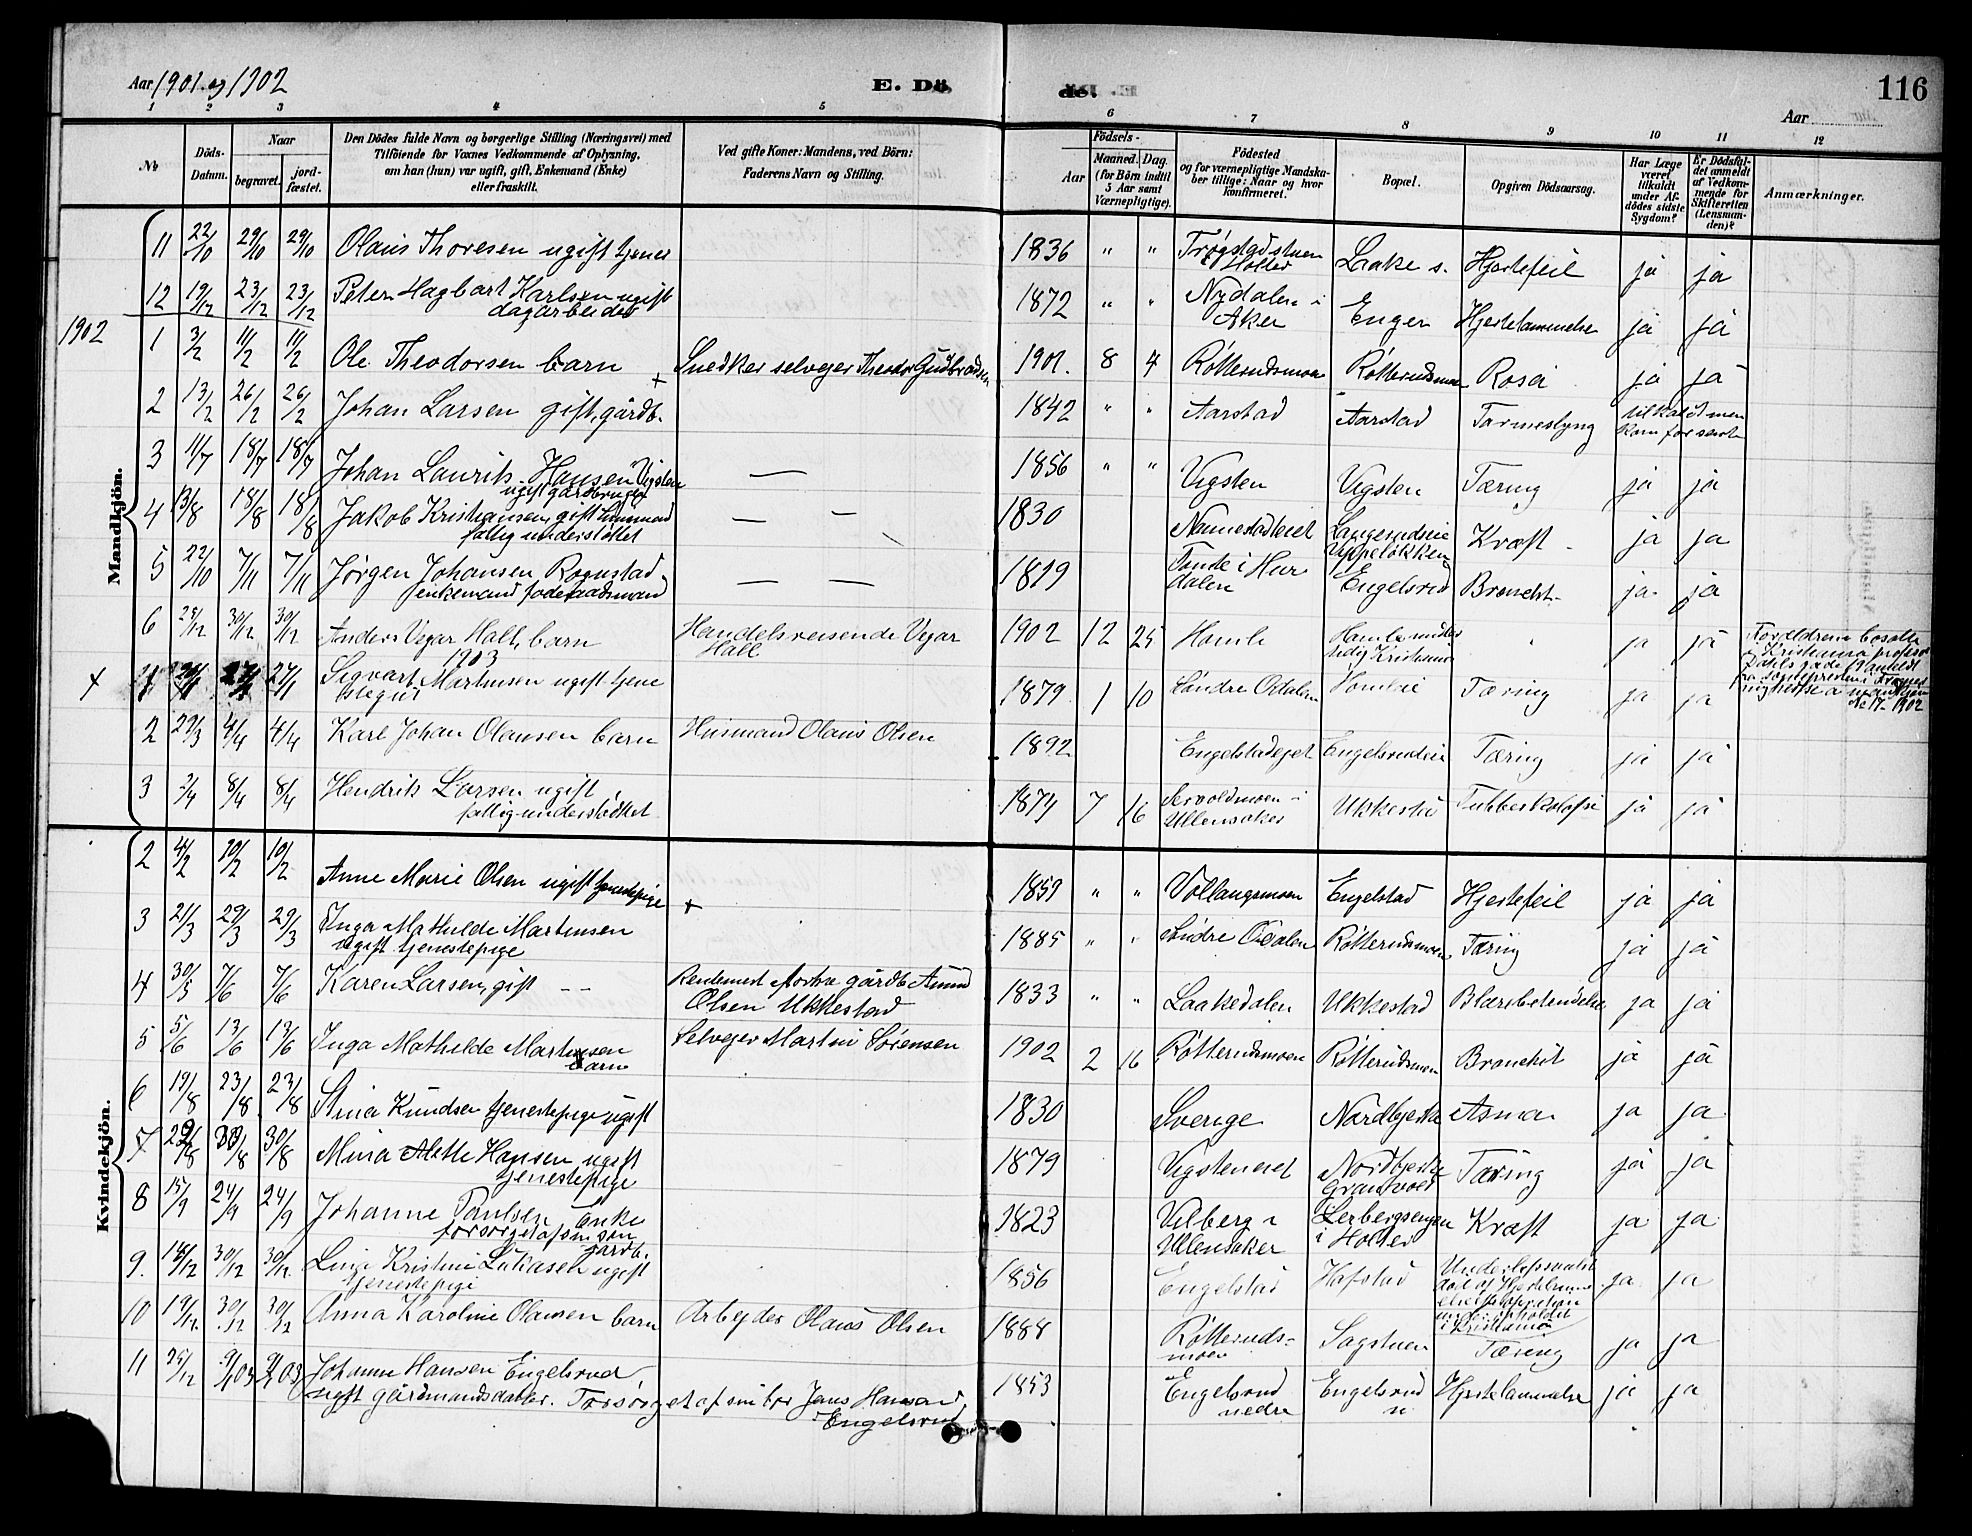 Aar 1901 og 1902
E. Dö
de.
116
Aar
1 2 3 4 5 6 7 8 9 10 11 12
No
Döds-Datum.
Naar
begravet.
jord-fæstet.
Den Dödes fulde Navn og borgerlige Stilling (Næringsvei) med
Tilföiende for Voxnes Vedkommende af Oplysning,
om han (hun) var ugift, gift, Enkemand (Enke)
eller fraskilt.
Ved gifte Koner: Mandens, ved Börn:
Faderens Navn og Stilling.
Födsels-
Aar
Maaned. Dag.
(for Börn indtil
5 Aar samt
Værnepligtige).
Födested
og for værnepligtige Mandska-
ber tillige: Naar og hvor
konfirmeret.
Bopæl.
Opgiven Dödsaarsag.
Har Læge
været
tilkaldt
under Af-
dödes sidste
Sygdom?
Er Dödsfal-
det anmeldt
af Vedkom-
mende for
Skifteretten
(Lensman-
den)?
Anmærkninger.
Mandkjön.
11 22/10 29/10 29/10 Olaus Thoresen ugift tjener 1836 " " Trøgstadstuen i Holter Laake s. Hjertefeil ja ja
12 19/12 23/12 23/12 Peter Hagbart Karlsen ugift dagarbeider 1872 " " Nydalen i Aker Enger Hjertelammelse ja ja
1902
1 3/2 11/2 11/2 Ole Theodorsen barn Snedker selvejer Theodor Gudbrandsen 1901. 8 4 Rötterudsmoen Rötterudsmoen ja ja
2 13/2 26/2 26/2 Johan Larsen gift, gårdb. 1842 " " Aarstad Aarstad Tarmeslyng tilkaldt men kom for sent
3 11/7 18/7 18/7 Johan Laurits Hansen Vigsten ugift gårdbruger — 1856 " " Vigsten Vigsten Tæring ja ja
4 13/8 18/8 18/8 Jakob Kristiansen, gift fattigunderstøttet — — 1830 Nannestadeiet Langerudseie Kræft - ja ja
5 22/10 7/11 7/11 Jørgen Johansen Rognstad enkemand føderaadsmand — — 1819 Tande i Hurdalen Engelsrud Bronchit- ja ja
6 25/12 30/12 30/12 Anders Vegar Hall, barn Handelsreisende Vegar Hall 1902 12 25 Homle " ja ja
1903
x 1 27/1 27/1 Sigvart Martinsen ugift 1879 1 10 Söndre Odalen Tæring ja ja
2 29/3 4/4 4/4 Karl Johan Olausen barn Husmand Olaus Olsen 1892 Engelstadejet Engelsrudeie Tæring ja ja
3 2/4 8/4 8/4 Hendrik Larsen ugift fattigunderstödtet 1874 7 16 Ullensaker Ukkestad Tubberkolose ja ja
Kvindekjön.
2 4/2 10/2 10/2 Anne Marie Olsen ugift tjenestepige x 1859 " " Vollaugsmoen Engelstad Hjertefeil ja ja
3 21/3 29/3 29/3 Inga Mathilde Martinsen ugift tjenestepige 1885 " " Söndre Odalen Rötterudsmoen Tæring ja ja
4 30/5 7/6 7/6 Karen Larsen, gift - - gårdb. Amund Olsen Ukkestad 1833 " " Laakedalen Ukkestad Blærebetendelse ja ja
5 5/6 13/6 13/6 Inga Mathilde Martinsen barn Selvejer Martin Sörensen 1902 2 16 Rötterudsmoen Rötterudsmoen Bronchit ja ja
6 19/8 23/8 23/8 Stina Knudsen tjenestepige ugift 1830 Sverige Nordbyeie Asma ja ja
7 30/8 30/8 Mina Alette Hansen ugift tjenestepige 1879 Vigsteneiet Tæring ja ja
8 15/9 24/9 24/9 Johanne Paulsen Enke forsörget af sin sön gårdb. 1823 Vilberg i Ullensaker Lerbergsengen i Holter Kræft ja ja
9. 18/12 30/12 30/12. Lina Kristine Lukasen ugift tjenestepige 1856 Engelstad Hafstad i Kristiania ja ja
10 19/12. 30/12 30/12 Anna Karoline Olausen barn Arbejder Olaus Olsen 1888 Rötteruds-moen Sagstuen Tæring ja ja
11 25/12 9/1 03 9/1 03 Johanne Hansen Engelsrud, ugift gårdmandsdatter. Forsörget af sin bror Jens Hansen Engelsrud 1853 Engelsrud nedre Engelsrud n Hjertelammelse ja ja